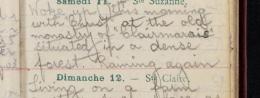 Samedi 11. — Ste Suzanne,
Woke up this morning
with Ernst at the old
monastry of "Clairmarais"
situated in a dense
forest. Raining again
Dimanche 12. — Ste Claire,
Living on a farm